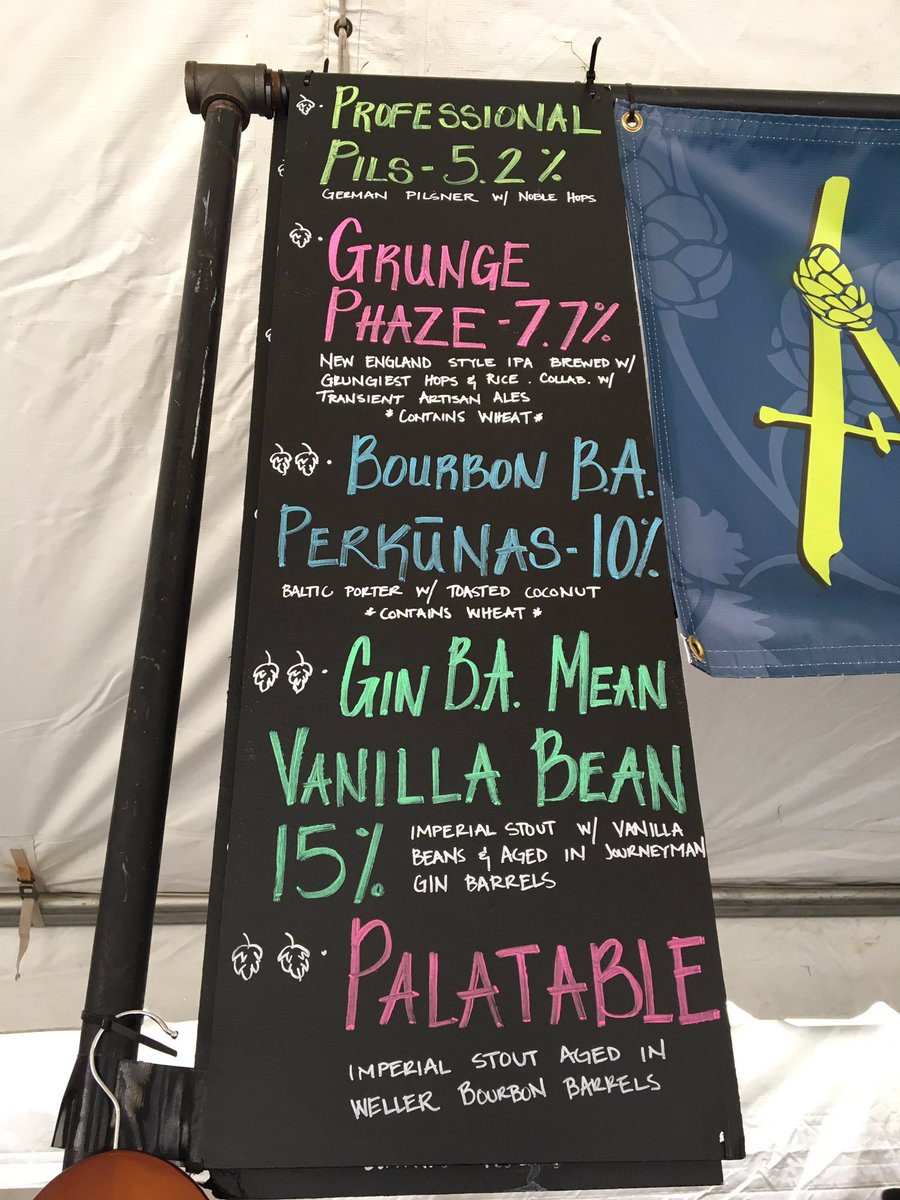 PROFESSIONAL
PILS-5.2%
GERMAN PILSNER W/ NOBLE HOPS
GRUNGE
PHAZE-7.7%
NEW ENGLAND STYLE IPA BREWED W/
GRUNGIEST HOPS & RICE. COLLAB. W/
TRANSIENT ARTISAN ALES
*CONTAINS WHEAT*
BOURBON B.A.
PERKŪNAS-10%
BALTIC PORTER W/ TOASTED COCONUT
*CONTAINS WHEAT*
GIN B.A. MEAN
VANILLA BEAN
15%
IMPERIAL STOUT W/ VANILLA
BEANS & AGED IN JOURNEYMAN
GIN BARRELS
PALATABLE
IMPERIAL STOUT AGED IN
WELLER BOURBON BARRELS